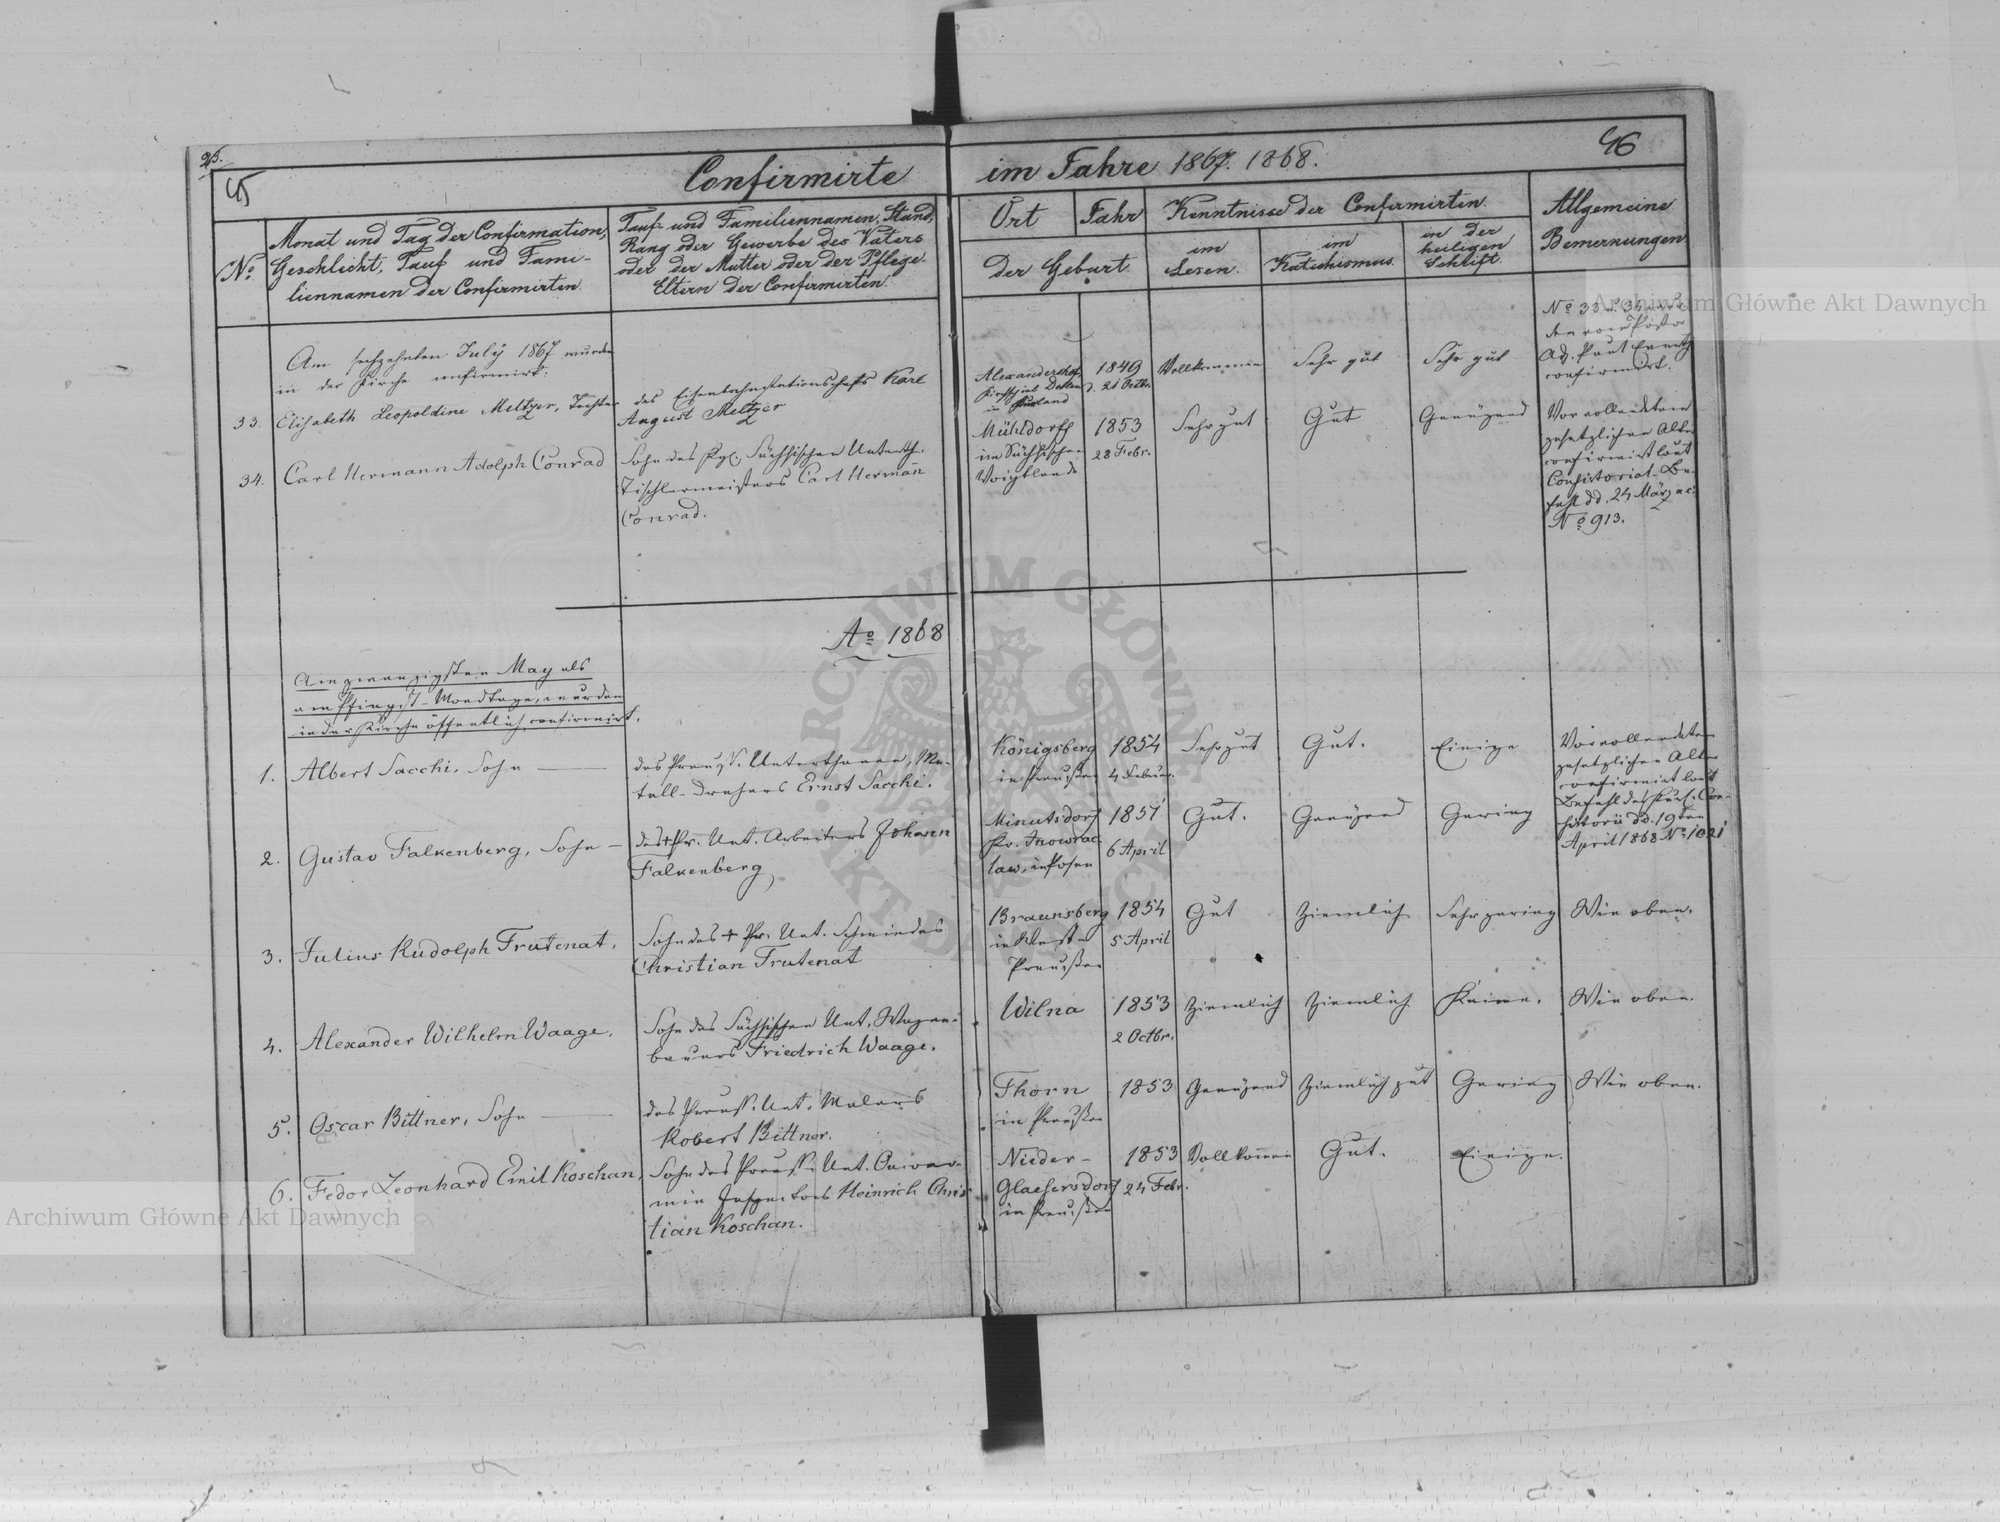 45
Confirmirte im Jahre 1867. 1868.
46
No.
Monat und Tag der Confirmation,
Geschlecht, Tauf und Fami-
liennamen der Confirmirten.
Tauf- und Familiennamen, Stand,
Rang oder Gewerbe des Vaters
oder der Mutter oder der Pflege-
Eltern der Confirmirten.
Ort
Jahr
der Geburt.
Kenntnisse der Confirmirten.
im
Lesen.
im
Katechismus.
in der
heiligen
Schrift.
Allgemeine
Bemerkungen
Am sechzehnten July 1867 wurden
in der Kirche confirmirt:
33.
Elisabeth Leopoldine Meltzer, Tochter
des Eisenbahnstationschefs Karl
August Meltzer
Alexandershof,
Kirchspiel
in Kurland
1849
d. 21 Octbr.
Vollkommen
Sehr gut
Sehr gut
No 33 u. 34
confirmirt.
34.
Carl Hermann Adolph Conrad
Sohn des Kgl. Sächsischen Unterth.
Tischlermeisters Carl Hermann
Conrad.
Mühldorff
im Sächsischen
Voigtlande
1853
28 Febr.
Sehr gut
Gut
Genügend
Vor vollendetem
gesetzlichen Alter
confirmirt laut
Consistorial-Be-
fehl dd. 24 März a c.
No 913.
Ao 1868
Am zwanzigsten May als
am Pfingst-Mondtage, wurden
in der Kirche öffentlich confirmirt.
1.
Albert Sacchi, Sohn
des Preuss. Unterthanen, Me-
tall-Drehers Ernst Sacchi.
Königsberg
in Preußen
1854
4 Februar.
Sehr gut
Gut.
Einige
Vor vollendetem
gesetzlichen Alter
confirmirt laut
Befehl des Con-
sistorii dd. 19ten
April 1868 No 1021
2.
Gustav Falkenberg, Sohn –
des + Pr. Unt. Arbeiters Johann
Falkenberg
Minutsdorf
Kr. Inowrac-
law, in Posen
1851
6 April
Gut.
Genügend
Gering
3.
Julius Rudolph Frutenat,
Sohn des + Pr. Unt. Schmiedes
Christian Frutenat
Braunsberg
in West-
Preußen
1854
5 April
Gut
Ziemlich
Sehr gering
Wie oben.
4.
Alexander Wilhelm Waage,
Sohn des Sächsischen Unt. Wagen-
bauers Friedrich Waage.
Wilna
1853
2 Octbr.
Ziemlich
Ziemlich
Keine.
Wie oben.
5.
Oscar Bittner, Sohn
des Preuss. Unt. Malers
Robert Bittner.
Thorn
in Preußen
1853
Genügend
Ziemlich gut
Gering
Wie oben.
6.
Fedor Leonhard Emil Koschan,
Sohn des Preuss. Unt.
Inspectors Heinrich Chris
tian Koschan.
Nieder-
Glaesersdorf
in Preußen
1853
24 Febr.
Vollkommen
Gut.
Einige.
Archiwum Główne Akt Dawnych
Archiwum Główne Akt Dawnych
ARCHIWUM GŁÓWNE AKT DAWNYCH